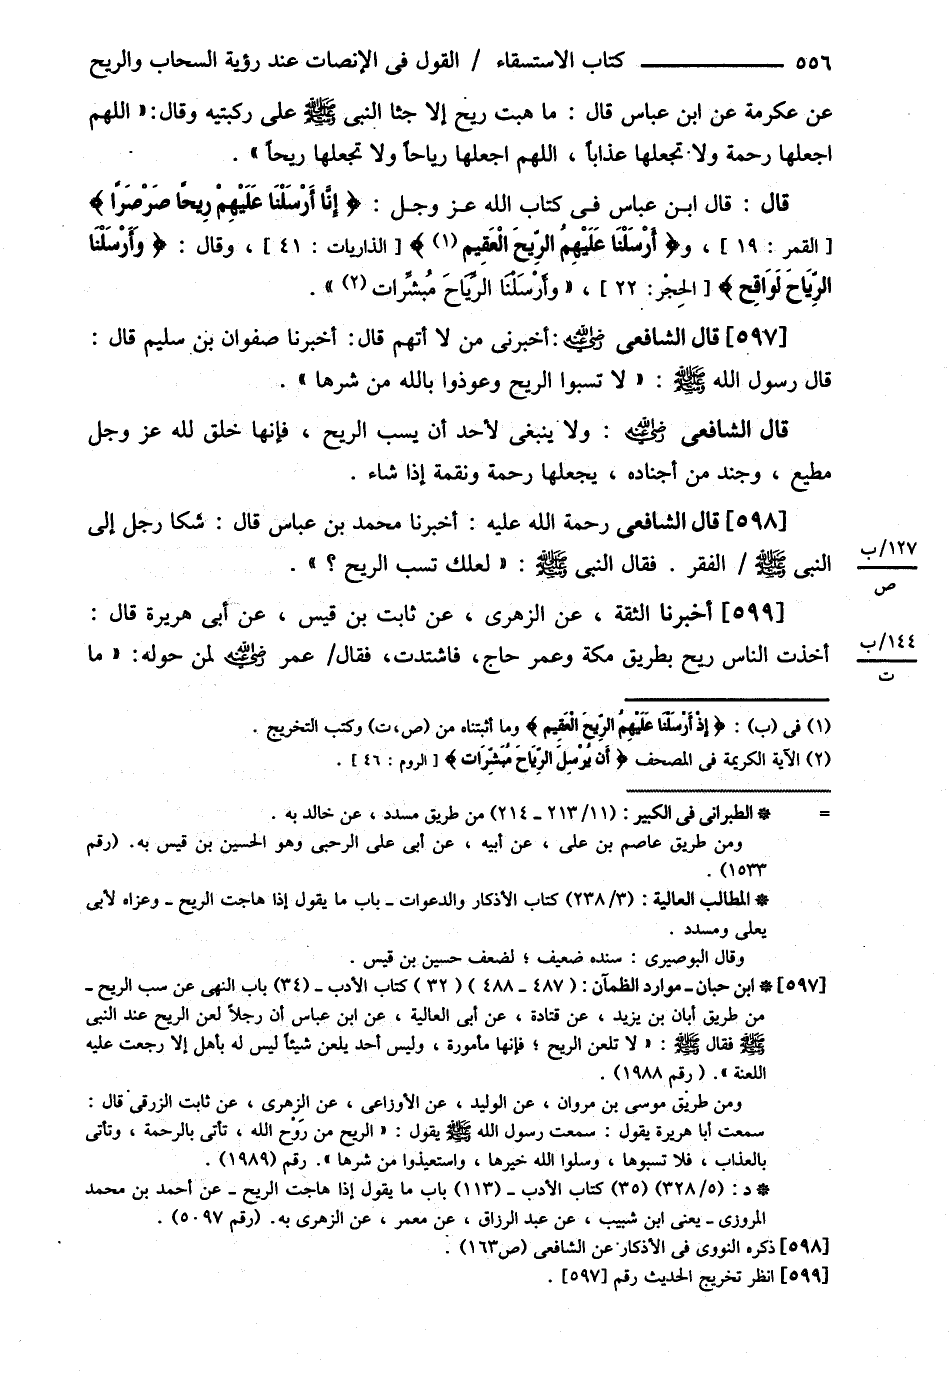 ٥٥٦ ــــــــــــــــ كتاب الاستسقاء / القول فى الإنصات عند رؤية السحاب والريح
عن عكرمة عن ابن عباس قال : ما هبت ريح إلا جثا النبى ﷺ على ركبتيه وقال: « اللهم
اجعلها رحمة ولا تجعلها عذاباً ، اللهم اجعلها رياحاً ولا تجعلها ريحاً » .
قال : قال ابن عباس فى كتاب الله عز وجل : ﴿ إِنَّا أَرْسَلْنَا عَلَيْهِمْ رِيحًا صَرْصَرًا ﴾
[ القمر : ١٩ ] ، و﴿ أَرْسَلْنَا عَلَيْهِمُ الرِّيحَ الْعَقِيم (١) ﴾ [ الذاريات : ٤١ ] ، وقال : ﴿ وَأَرْسَلْنَا
الرِّيَاحَ لَوَاقِح ﴾ [ الحِجْر: ٢٢ ] ، « وأَرْسَلْنَا الرِّيَاحَ مُبشِّرات (٢) » .
[٥٩٧] قال الشافعى رضي الله عنه : أخبرنى من لا أتهم قال: أخبرنا صفوان بن سليم قال :
قال رسول الله ﷺ : « لا تسبوا الريح وعوذوا بالله من شرها » .
قال الشافعى رضي الله عنه : ولا ينبغى لأحد أن يسب الريح ، فإنها خلق لله عز وجل
مطيع ، وجند من أجناده ، يجعلها رحمة ونقمة إذا شاء .
[٥٩٨] قال الشافعى رحمة الله عليه : أخبرنا محمد بن عباس قال : شكا رجل إلى
النبى ﷺ / الفقر . فقال النبى ﷺ : « لعلك تسب الريح ؟ » .
١٢٧/ب
ص
[٥٩٩] أخبرنا الثقة ، عن الزهرى ، عن ثابت بن قيس ، عن أبى هريرة قال :
أخذت الناس ريح بطريق مكة وعمر حاج، فاشتدت، فقال/ عمر رضي الله عنه لمن حوله: « ما
١٤٤/ب
ت
(١) فى (ب) : ﴿ إِذْ أَرْسَلْنَا عَلَيْهِمُ الرِّيحَ الْعَقِيم ﴾ وما أثبتناه من (ص،ت) وكتب التخريج .
(٢) الآية الكريمة فى المصحف ﴿ أَن يُرْسِلَ الرِّيَاحَ مُبَشِّرَات ﴾ [ الروم : ٤٦ ] .
= * الطبرانى فى الكبير : (١١/ ٢١٣ ـ ٢١٤) من طريق مسدد ، عن خالد به .
ومن طريق عاصم بن على ، عن أبيه ، عن أبى على الرحبى وهو الحسين بن قيس به. (رقم
١٥٣٣) .
* المطالب العالية : (٣/ ٢٣٨) كتاب الأذكار والدعوات ـ باب ما يقول إذا هاجت الريح ـ وعزاه لأبى
يعلى ومسدد .
وقال البوصيرى : سنده ضعيف ؛ لضعف حسين بن قيس .
[٥٩٧] * ابن حبان ـ موارد الظمآن : ( ٤٨٧ ـ ٤٨٨ ) ( ٣٢ ) كتاب الأدب ـ (٣٤) باب النهى عن سب الريح ـ
من طريق أبان بن يزيد ، عن قتادة ، عن أبى العالية ، عن ابن عباس أن رجلاً لعن الريح عند النبى
ﷺ فقال ﷺ : « لا تلعن الريح ؛ فإنها مأمورة ، وليس أحد يلعن شيئاً ليس له بأهل إلا رجعت عليه
اللعنة ». ( رقم ١٩٨٨) .
ومن طريق موسى بن مروان ، عن الوليد ، عن الأوزاعى ، عن الزهرى ، عن ثابت الزرقى قال :
سمعت أبا هريرة يقول : سمعت رسول الله ﷺ يقول : « الريح من رَوْح الله ، تأتى بالرحمة ، وتأتى
بالعذاب ، فلا تسبوها ، وسلوا الله خيرها ، واستعيذوا من شرها ». رقم (١٩٨٩) .
* د : (٥/ ٣٢٨) (٣٥) كتاب الأدب ـ (١١٣) باب ما يقول إذا هاجت الريح ـ عن أحمد بن محمد
المروزى ـ يعنى ابن شبيب ، عن عبد الرزاق ، عن معمر ، عن الزهرى به. (رقم ٥٠٩٧) .
[٥٩٨] ذكره النووى فى الأذكار عن الشافعى (ص١٦٣) .
[٥٩٩] انظر تخريج الحديث رقم [٥٩٧] .